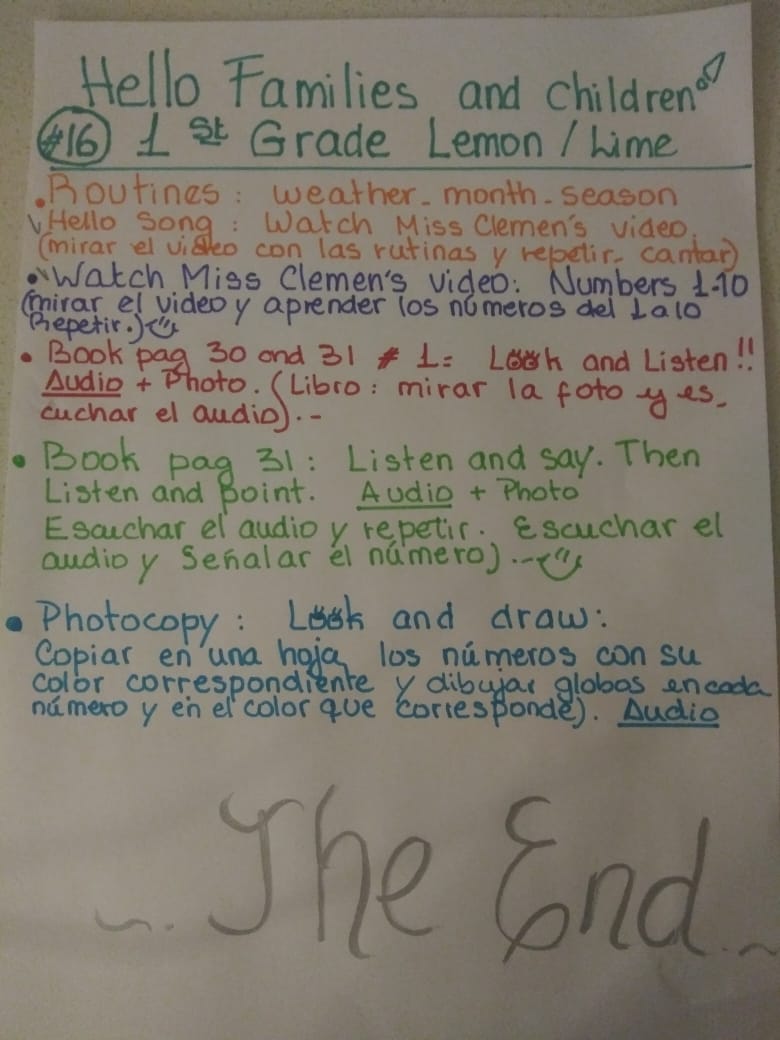 Hello Families and children
#16 1st Grade Lemon / Lime
• Routines: weather - month - season
√Hello Song: Watch Miss Clemen's video.
(mirar el video con las rutinas y repetir - cantar)
• Watch Miss Clemen's video: Numbers 1-10
(mirar el video y aprender los números del 1 a 10
Repetir.)
• Book pag 30 and 31 # 1= Look and Listen!!
Audio + Photo. (Libro: mirar la foto y es-
cuchar el audio).-
• Book pag 31: Listen and say. Then
Listen and point. Audio + Photo
Escuchar el audio y repetir. Escuchar el
audio y Señalar el número).-
• Photocopy: Look and draw:
Copiar en una hoja los números con su
color correspondiente y dibujar globos en cada
número y en el color que corresponde). Audio
The End